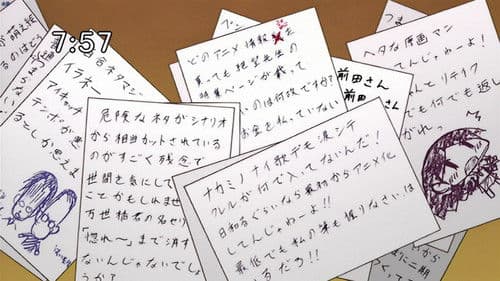 7:57
が萌え絵
るのはどう
古ネタマン
イラネー
アイキャッチ
テンポが悪
るとしか思えま
危険なネタがシナリオ
から相当カットされている
のがすごく残念で
世間を気にして
ことかもしれませ
万世橋君の名セリ
「惚れ〜」まで消す
ないんじゃないでしょ
うか?
どのアニメ情報を
見ても絶望先生の
特集ページが載って
のは何故ですか?
お金を払っていない
前田さん
前田さん
ナカミノナイ歌デモ
クレルが何で入ってないんだ!
日和るぐらいなら最初からアニメ化
してんじゃねーよ!!
最低でも私の筆も握りなさいは
るだろ!!
つま
ヘタな原画マン
てんじゃねーよ!
んとリテイク
でも何でも返
がれっ
から
に二期